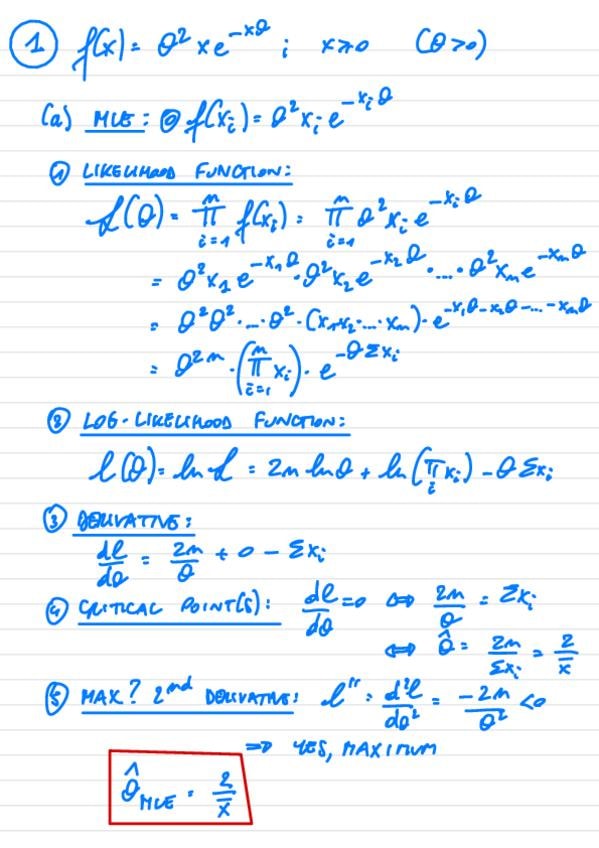 ① f(x) = θ² x e^{-xθ} ; x ≥ 0 (θ > 0)
(a) MLE : ⓪ f(x_i) = θ² x_i e^{-x_i θ}
① LIKELIHOOD FUNCTION:
ℒ(θ) = ∏_{i=1}^{n} f(x_i) = ∏_{i=1}^{n} θ² x_i e^{-x_i θ}
= θ² x₁ e^{-x₁θ} · θ² x₂ e^{-x₂θ} · … · θ² x_n e^{-x_nθ}
= θ² θ² · … · θ² · (x₁ x₂ · … · x_n) · e^{-x₁θ - x₂θ - … - x_nθ}
= θ^{2n} · (∏_{i=1}^{n} x_i) · e^{-θ Σx_i}
② LOG-LIKELIHOOD FUNCTION:
ℓ(θ) = ln ℒ = 2n ln θ + ln(∏_i x_i) - θ Σx_i
③ DERIVATIVE:
dℓ/dθ = 2n/θ + 0 - Σx_i
④ CRITICAL POINT(S): dℓ/dθ = 0 ⇔ 2n/θ = Σx_i
⇔ θ̂ = 2n/Σx_i = 2/x̄
⑤ MAX? 2nd DERIVATIVE: ℓ'' = d²ℓ/dθ² = -2n/θ² < 0
⇒ YES, MAXIMUM
θ̂_MLE = 2/x̄